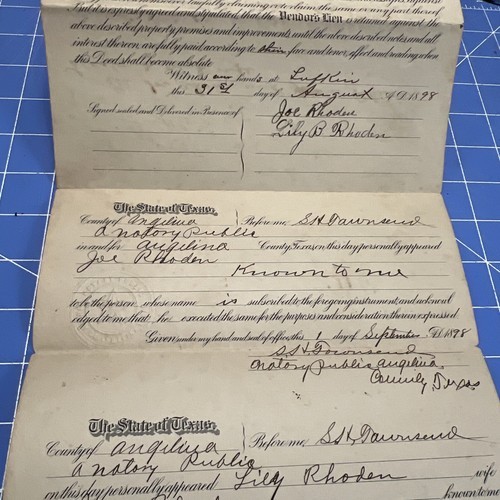 But it is expressly agreed and stipulated, that the Vendor's Lien is retained against the
above described property, premises and improvements, until the above described notes and all
interest thereon are fully paid according to their face and tenor, effect and reading, when
this Deed shall become absolute
Witness our hands at Lufkin
this 31st day of August A.D. 1898
Signed, sealed and Delivered in Presence of
Joe Rhoden
Lily B Rhoden
The State of Texas,
County of Angelina Before me, S H Townsend
a notary Public
in and for Angelina County, Texas, on this day personally appeared
Joe Rhoden
Known to me
to be the person whose name is subscribed to the foregoing instrument, and acknowl
edged to me that he executed the same for the purposes and consideration therein expressed
Given under my hand and seal of office, this 1 day of September A.D. 1898
S H Townsend
notary public Angelina
County Texas
The State of Texas,
County of Angelina Before me, S H Townsend
a notary Public
on this day personally appeared Lily Rhoden wife
Rhoden known to me